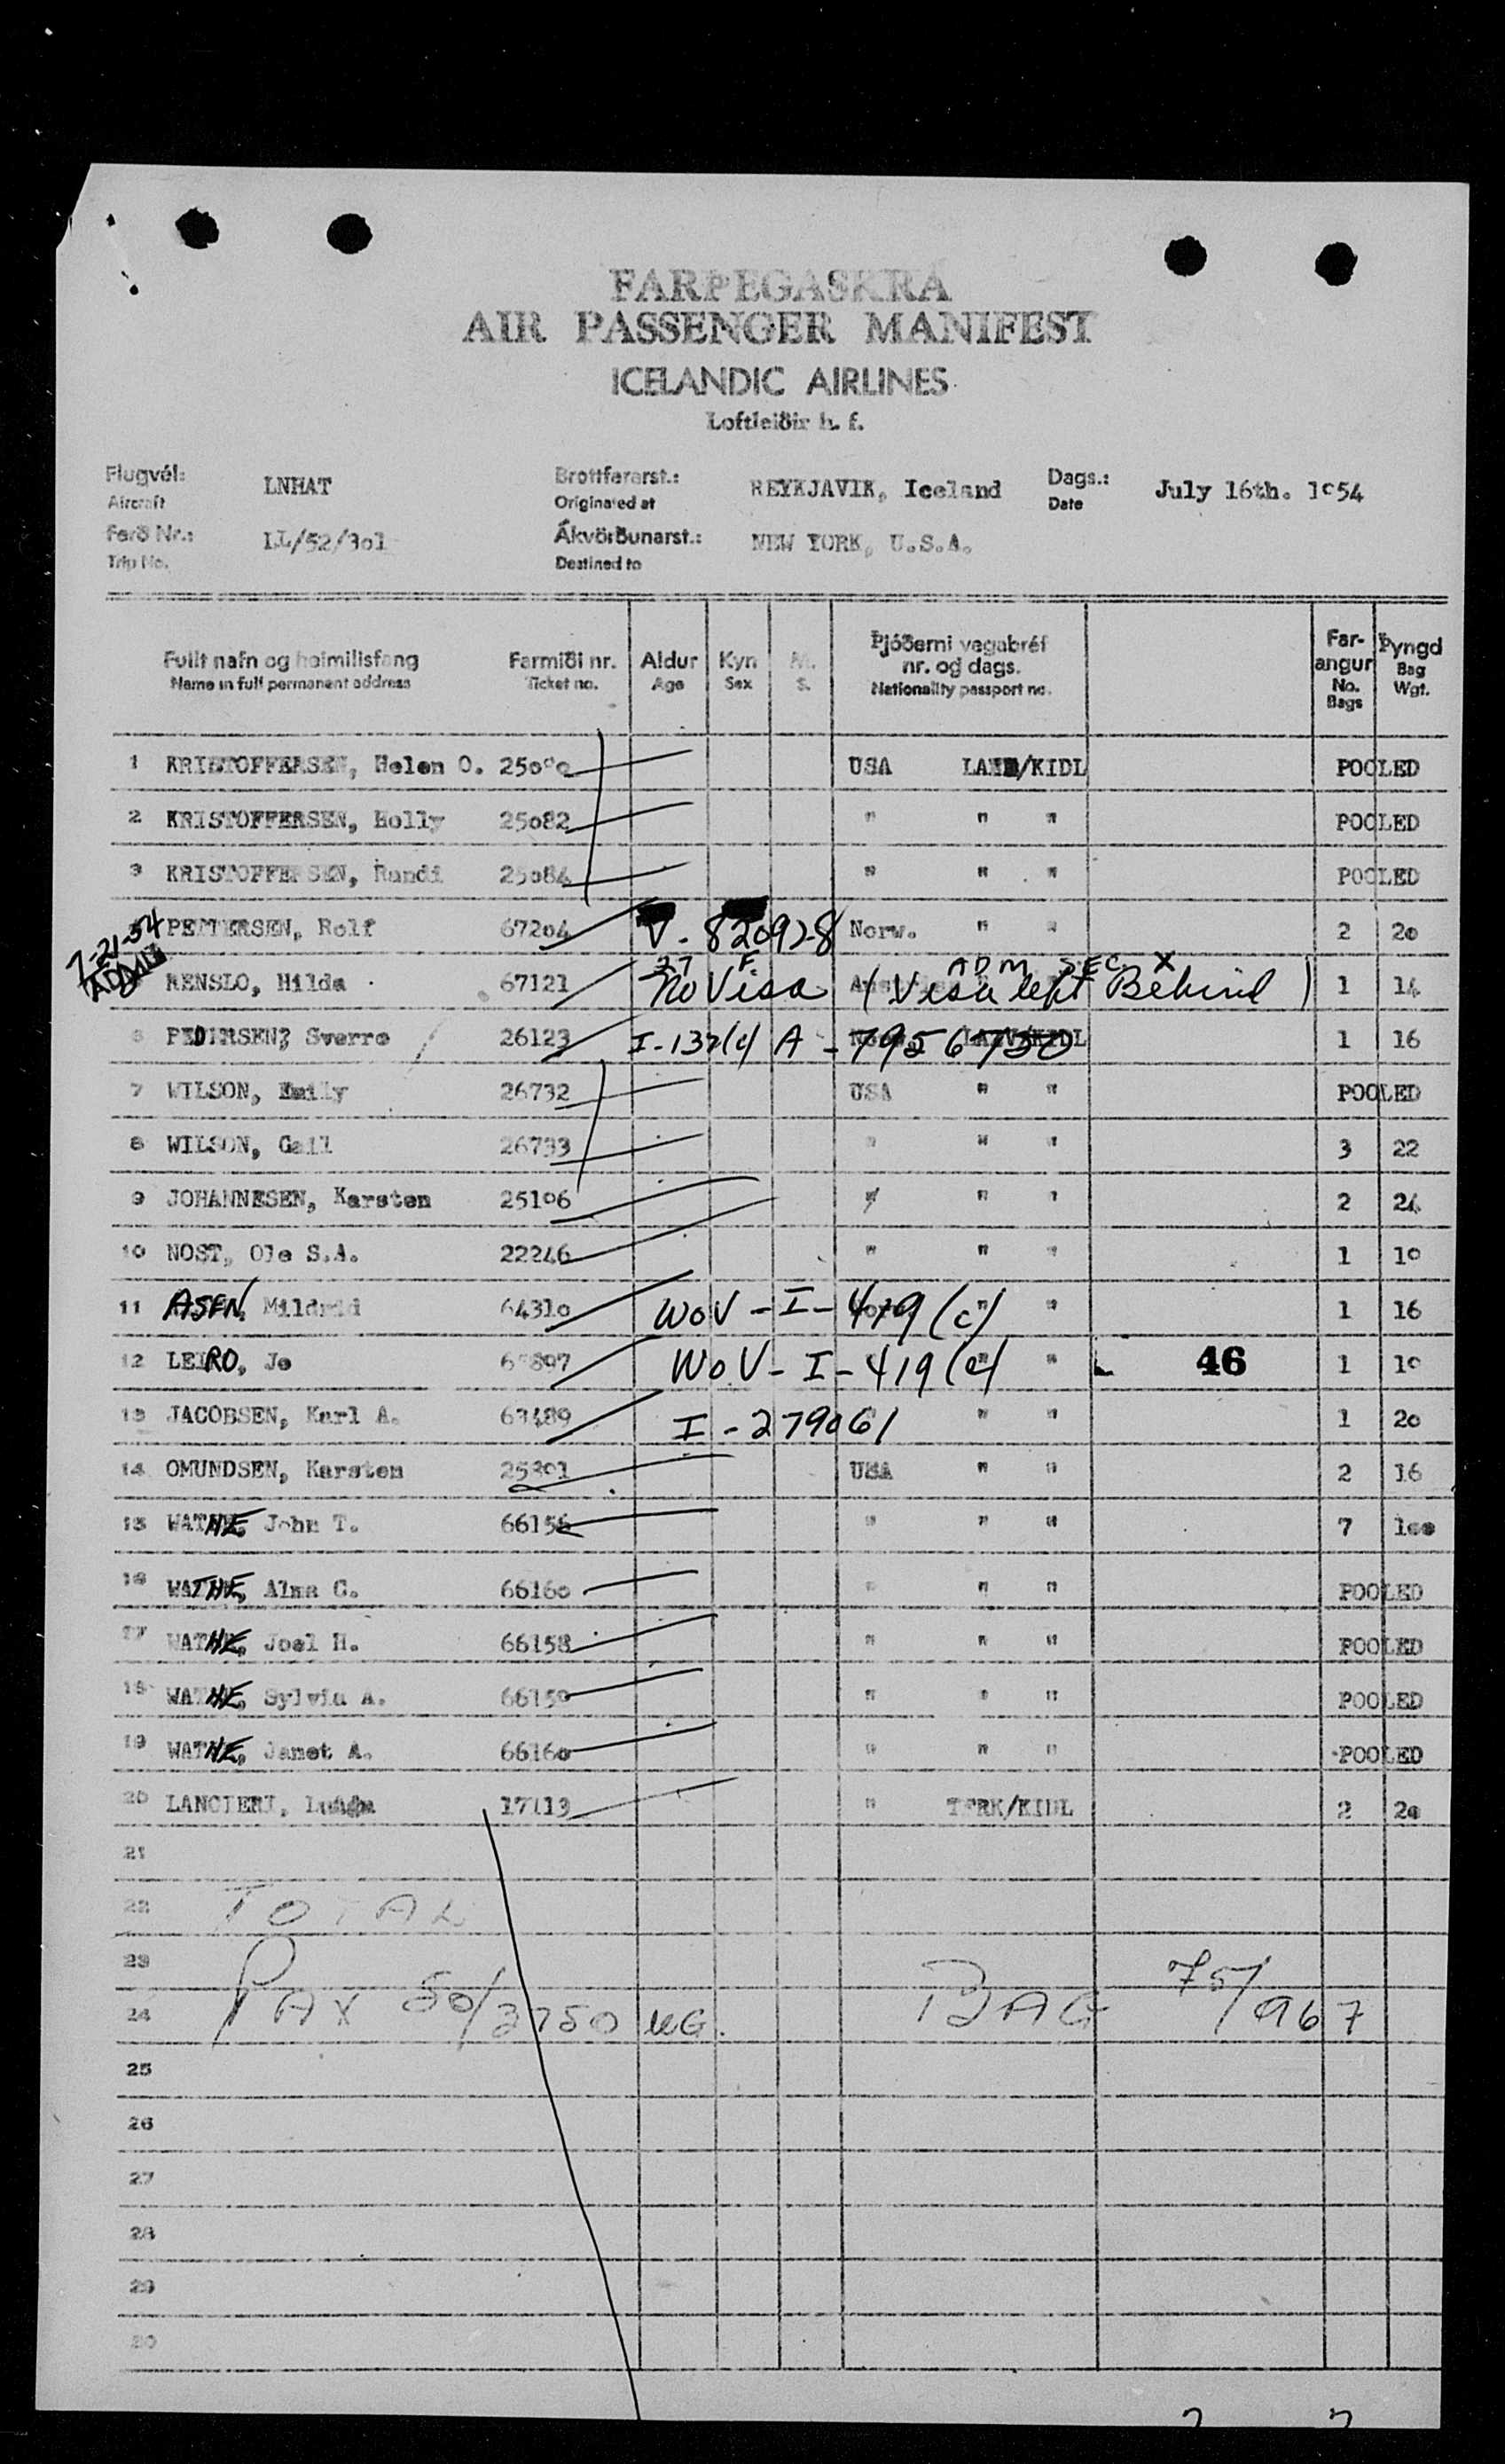 FARÞEGASKRÁ
AIR PASSENGER MANIFEST
ICELANDIC AIRLINES
Loftleiðir h. f.
Flugvél: LNHAT Brottfararst.: REYKJAVIK, Iceland Dags.: July 16th. 1954
Aircraft Originated at Date
Ferð Nr.: LL/52/301 Ákvörðunarst.: NEW YORK, U.S.A.
Trip No. Destined to
Fullt nafn og heimilisfang Farmiði nr. Aldur Kyn M. Þjóðerni vegabréf nr. og dags. Farangur Þyngd
Name in full permanent address Ticket no. Age Sex S. Nationality passport no. No. Bags Bag Wgt.
1 KRISTOFFERSEN, Helen O. USA /KIDL POOLED
2 KRISTOFFERSEN, Holly 25082 " " " POOLED
3 KRISTOFFERSEN, Randi 25084 " " " POOLED
7-21-54 PETTERSEN, Rolf 67204 V-820928 Norw. " " 2 20
27 F. ADM SEC X
RENSLO, Hilda 67121 No Visa (Visa left Behind) 1 14
6 PEDERSEN, Sverre 26123 I-132(c) A-7956730 1 16
7 WILSON, Emily 26732 USA " " POOLED
8 WILSON, Gail 26733 " " " 3 22
9 JOHANNESEN, Karsten 25106 " " " 2 24
10 NOST, Ole S.A. 22246 " " " 1 10
11 ASEN, Mildrid 64310 WOV-I-479(c) " " 1 16
12 LEIRO, Jo WOV-I-419(e) " " 46 1 10
13 JACOBSEN, Karl A. 63489 I-279061 " " 1 20
14 OMUNDSEN, Karsten 25301 USA " " 2 16
15 WATHE, John T. 66156 " " " 7 100
16 WATHE, Alma C. 66160 " " " POOLED
17 WATHE, Joel H. 66158 " " " POOLED
18 WATHE, Sylvia A. 66159 " " " POOLED
19 WATHE, Janet A. 66160 " " " POOLED
20 LANCIERI, 17113 " /KIDL 2 20
21
22 TOTAL
23
24 PAX 50/3750 KG. BAG 75/967
25
26
27
28
29
30